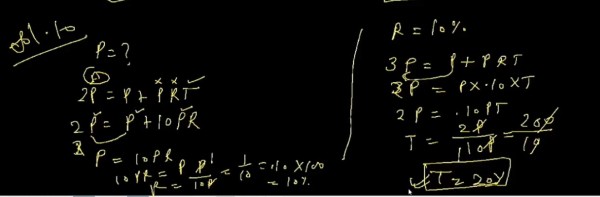 Sol.10
P = ?
A
2P = P + PRT
2P = P + 10PR
P = 10PR
10PR = P
R = P/10P = 1/10 = .10 X 100
= 10%
R = 10%
3P = P + PRT
3P = P X .10 X T
2P = .10PT
T = 2P/.10P = 200/10
T = 20Y